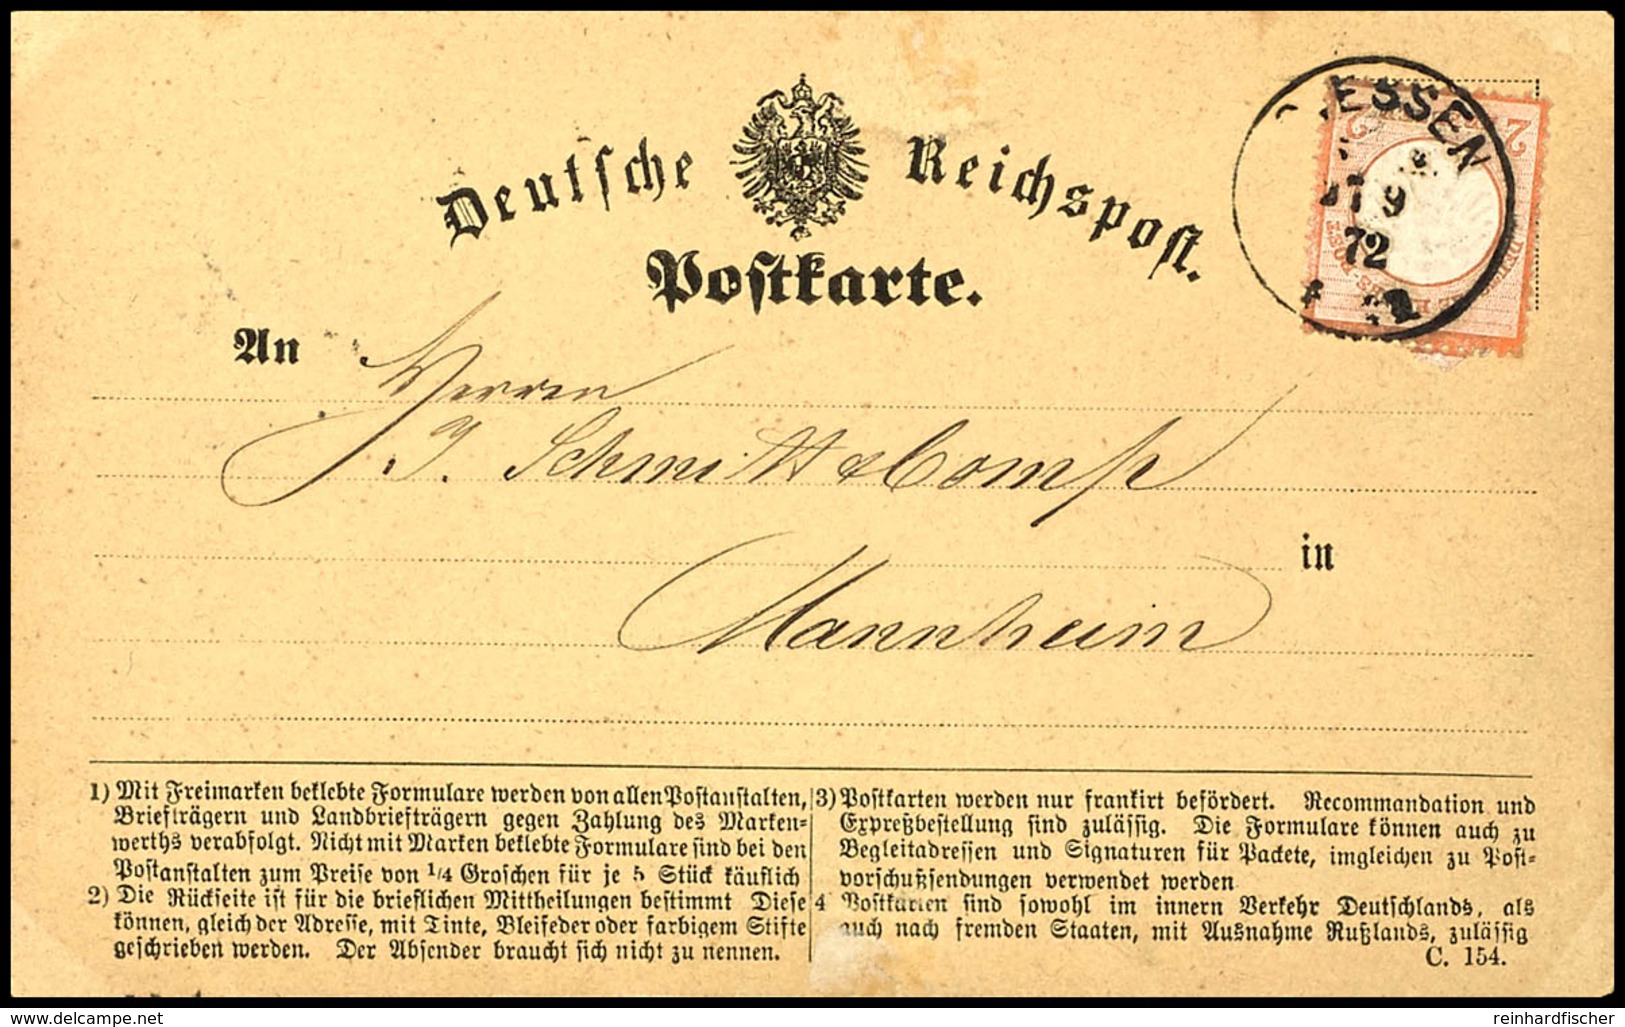 Deutsche Reichspost.
Postkarte.
ESSEN
9
72
2 2
An
Herren
J. Schmitt & Comp
in
Mannheim
1) Mit Freimarken beklebte Formulare werden von allen Postanstalten,
Briefträgern und Landbriefträgern gegen Zahlung des Marken-
werths verabfolgt. Nicht mit Marken beklebte Formulare sind bei den
Postanstalten zum Preise von 1/4 Groschen für je 5 Stück käuflich
2) Die Rückseite ist für die brieflichen Mittheilungen bestimmt Diese
können, gleich der Adresse, mit Tinte, Bleifeder oder farbigem Stifte
geschrieben werden. Der Absender braucht sich nicht zu nennen.
3) Postkarten werden nur frankirt befördert. Recommandation und
Expreßbestellung sind zulässig. Die Formulare können auch zu
Begleitadressen und Signaturen für Packete, imgleichen zu Post-
vorschußsendungen verwendet werden
4 Postkarten sind sowohl im innern Verkehr Deutschlands, als
auch nach fremden Staaten, mit Ausnahme Rußlands, zulässig
C. 154.
www.delcampe.com
reinhardfischer